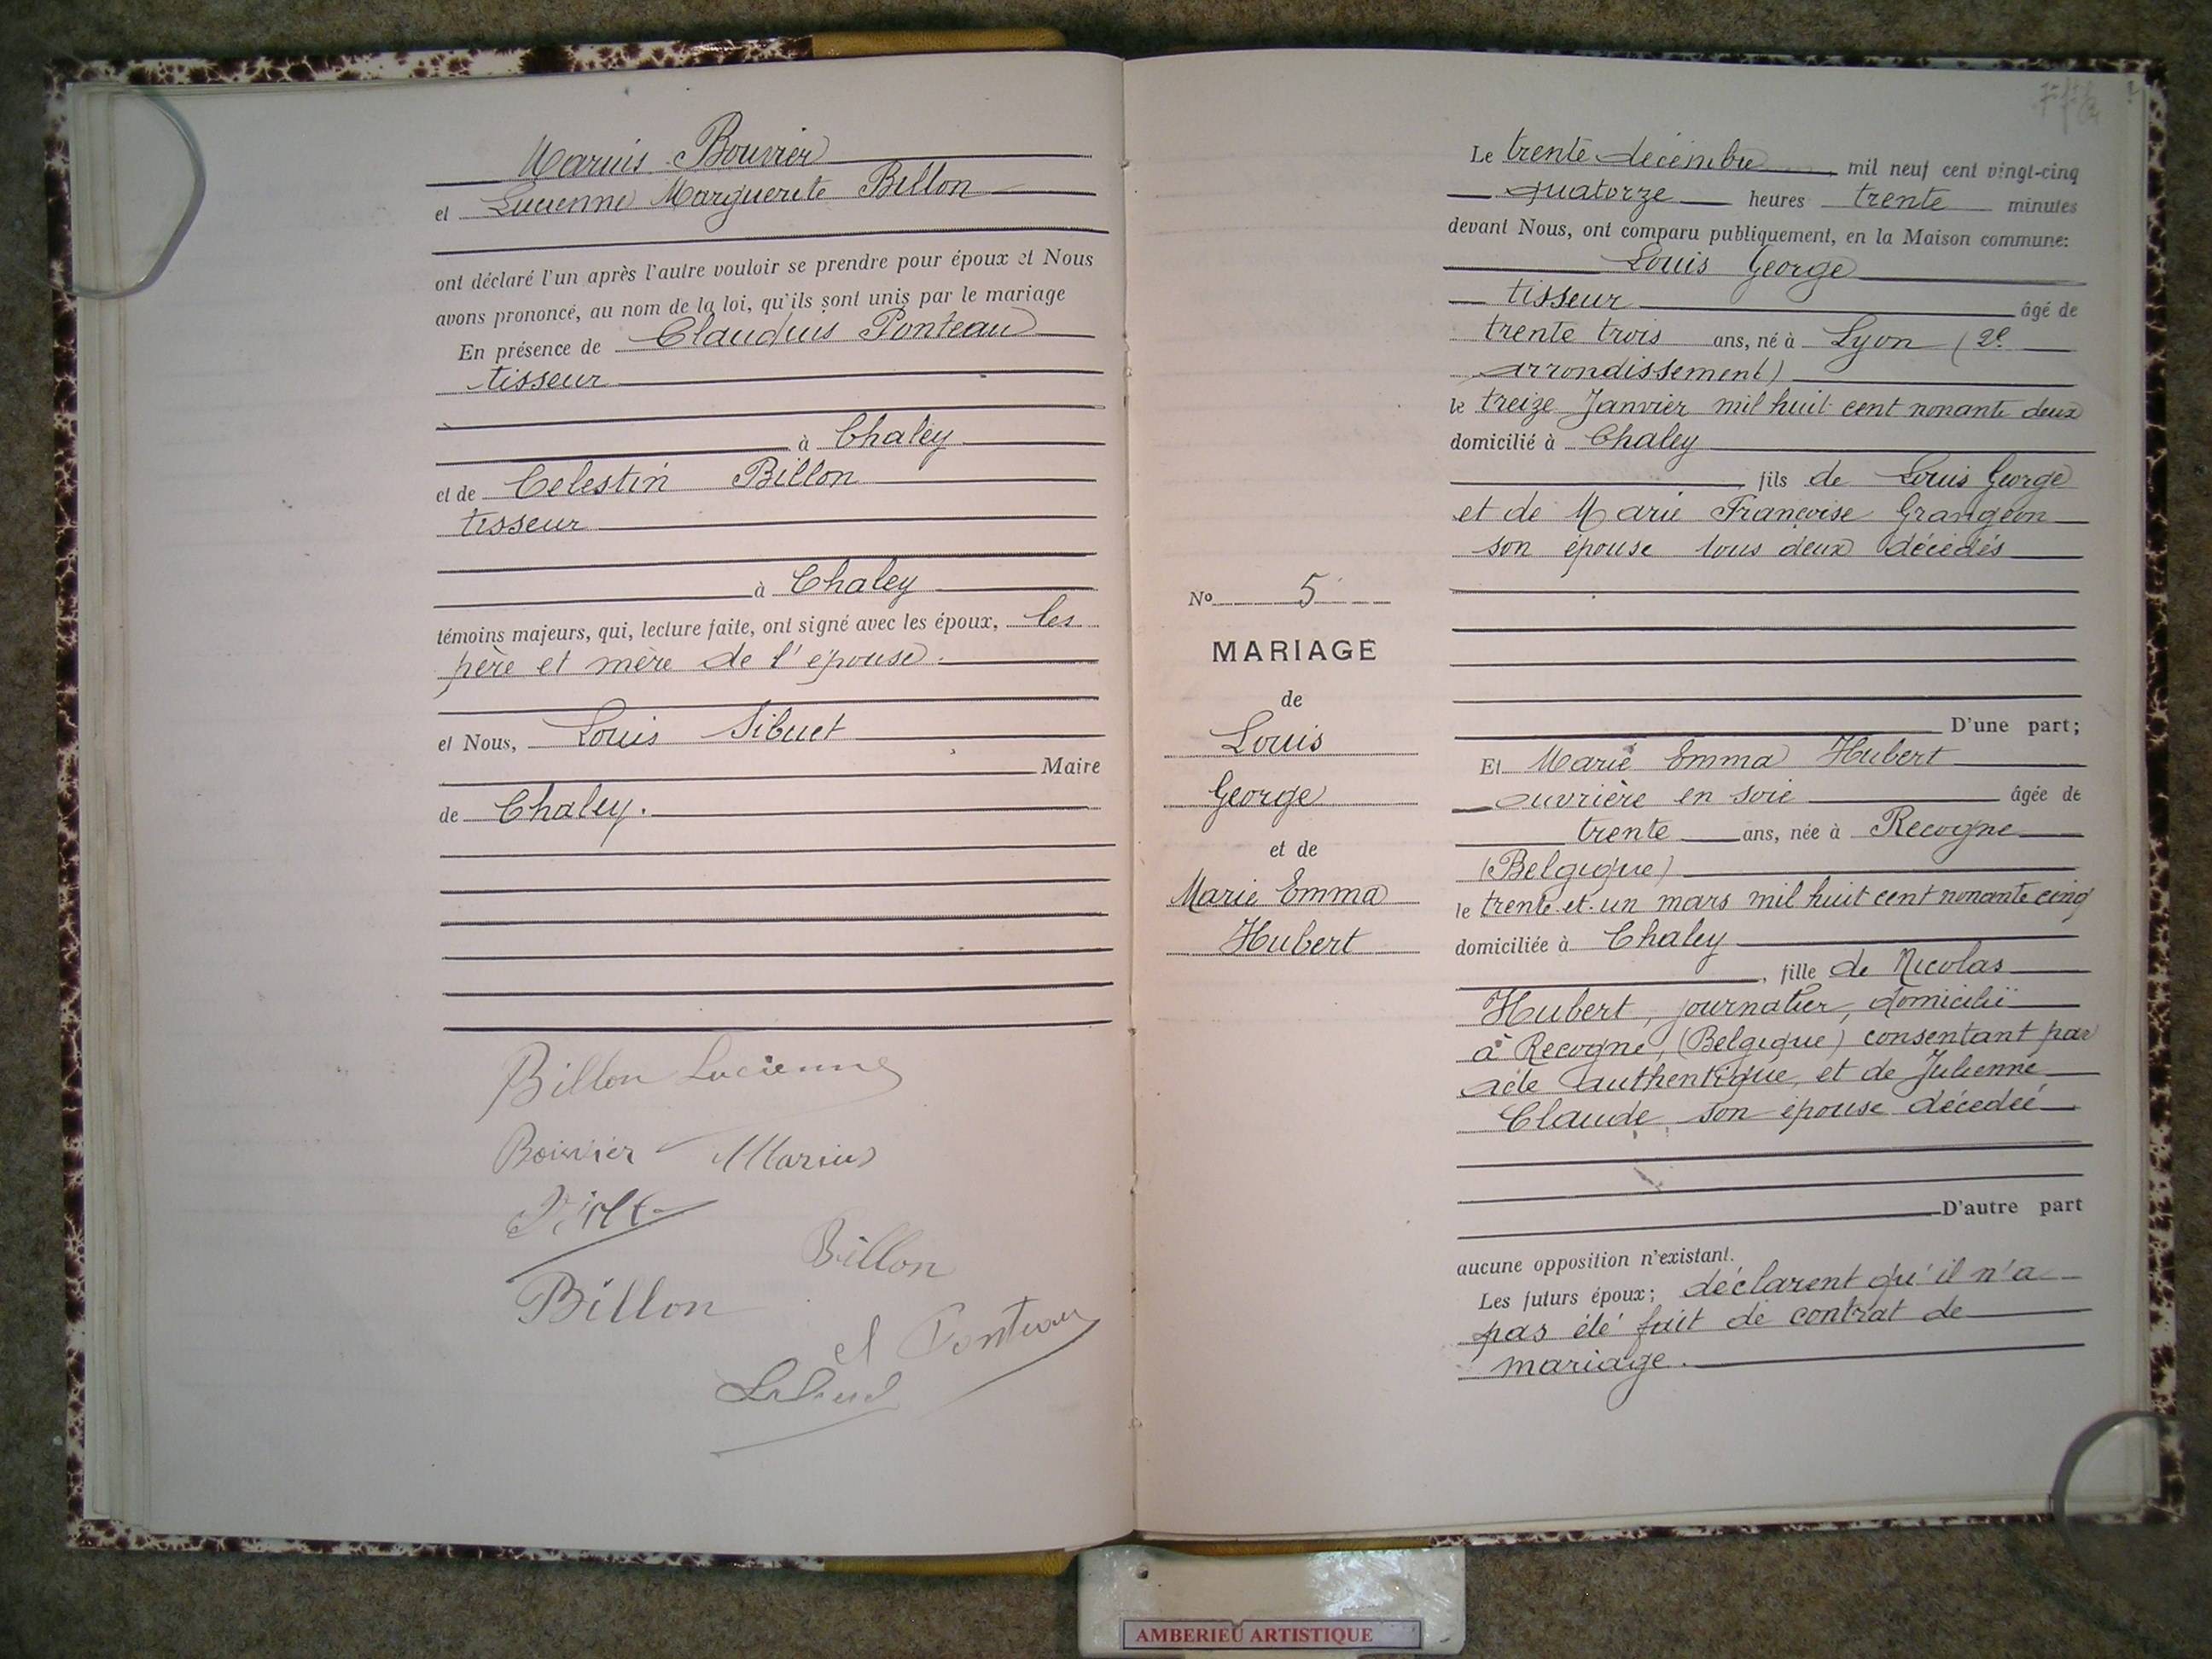 Marius Bouvier
et Lucienne Marguerite Billon
ont déclaré l'un après l'autre vouloir se prendre pour époux et Nous
avons prononcé, au nom de la loi, qu'ils sont unis par le mariage
En présence de Claudius Ponteau
tisseur
à Chaley
et de Celestin Billon
tisseur
à Chaley
témoins majeurs, qui, lecture faite, ont signé avec les époux, les
père et mère de l'épouse.
et Nous, Louis Sibuet
Maire
de Chaley.
Billon Lucienne
Bouvier Marius
Billon
Billon
cl Ponteau
Le trente décembre mil neuf cent vingt-cinq
quatorze heures trente minutes
devant Nous, ont comparu publiquement, en la Maison commune:
Louis George
tisseur âgé de
trente trois ans, né à Lyon (2e
arrondissement)
le treize Janvier mil huit cent nonante deux
domicilié à Chaley
fils de Louis George
et de Marie Françoise Grangeon
son épouse tous deux décédés
No 5
MARIAGE
de
Louis
George
et de
Marie Emma
Hubert
D'une part;
Et Marie Emma Hubert
ouvrière en soie âgée de
trente ans, née à Recogne
(Belgique)
le trente et un mars mil huit cent nonante cinq
domiciliée à Chaley
, fille de Nicolas
Hubert, journalier, domicilié
à Recogne, (Belgique) consentant par
acte authentique, et de Julienne
Claude son épouse décédée
D'autre part
aucune opposition n'existant.
Les futurs époux; déclarent qu'il n'a
pas été fait de contrat de
mariage.
AMBERIEU ARTISTIQUE